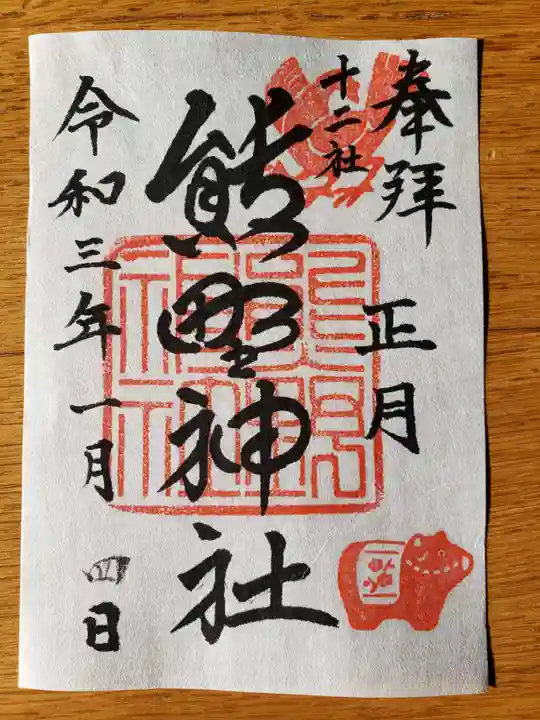 奉拝
正月
十二社
熊野神社
令和三年一月四日
熊野神社